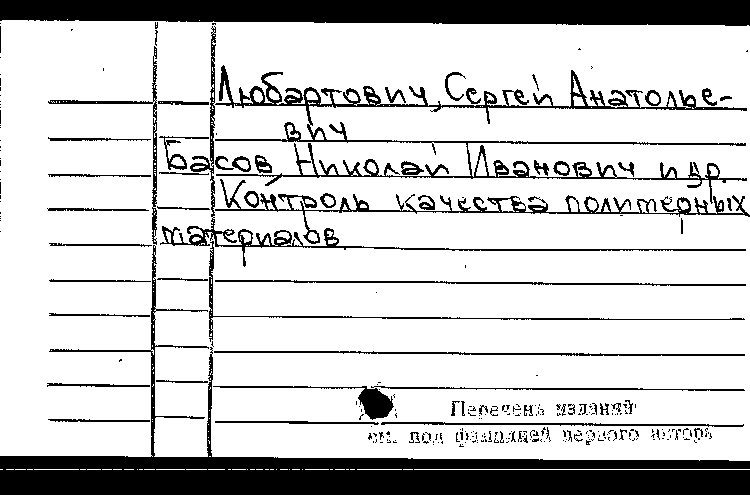 Любартович, Сергей Анатолье-
вич
Басов, Николай Иванович и др.
Контроль качества полимерных
материалов
Перечень изданий
см. под фамилией первого автора